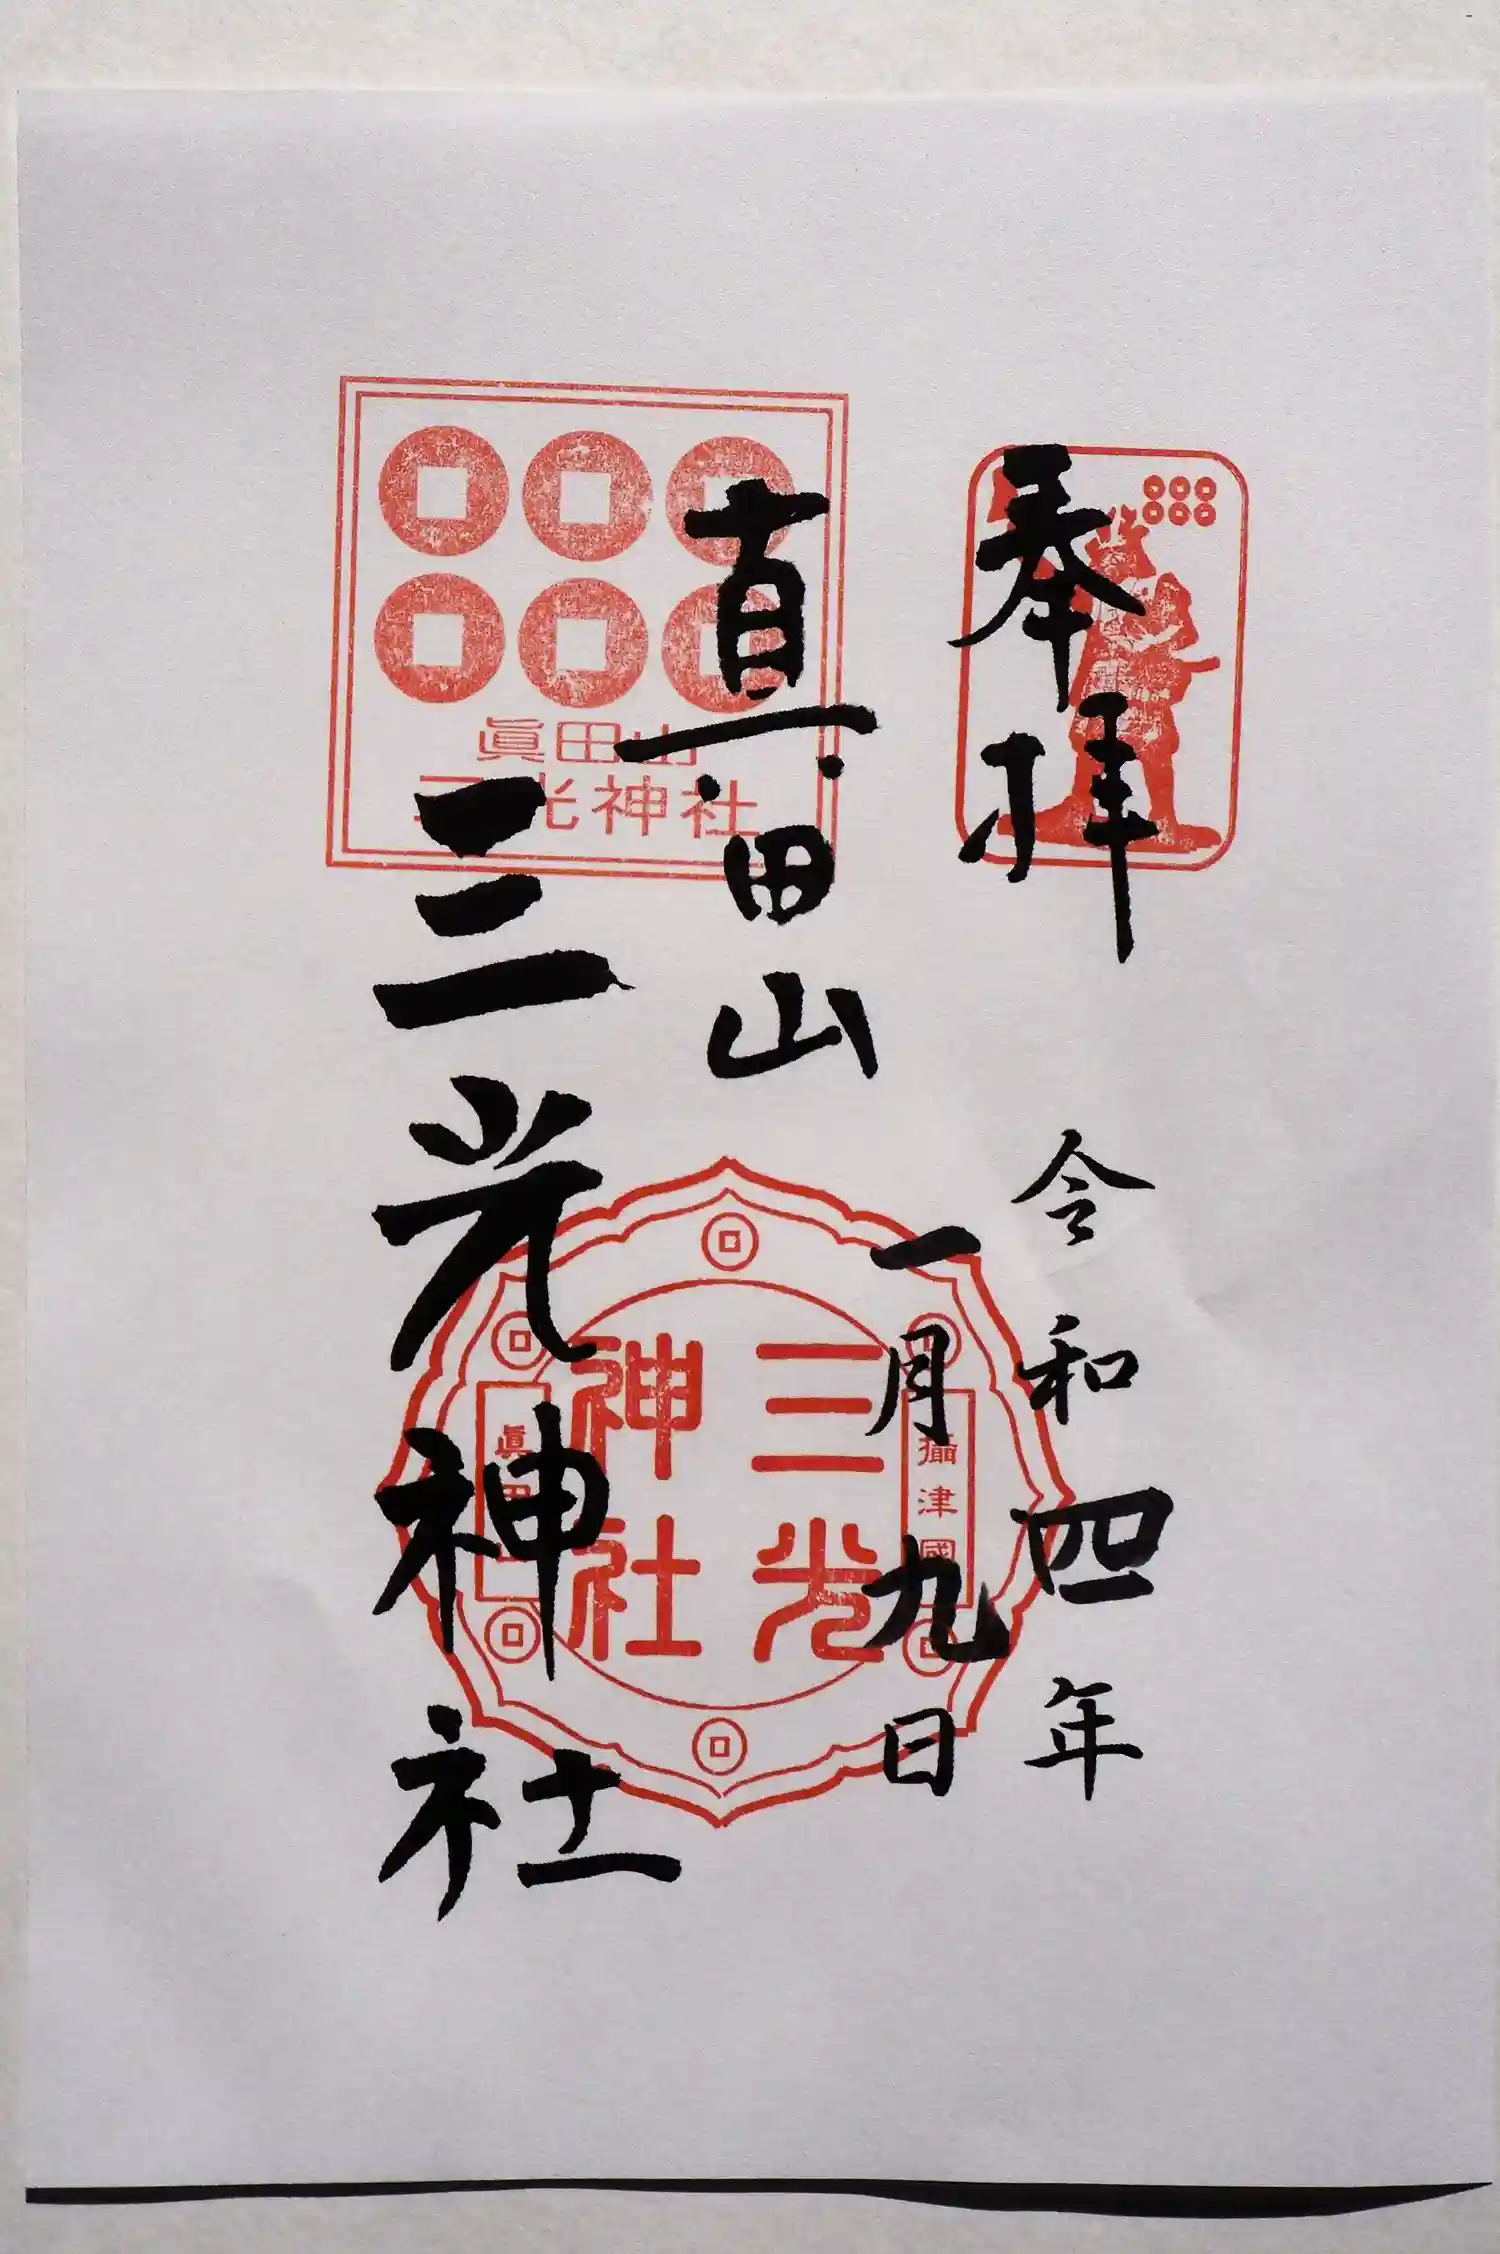 奉拝
令和四年
一月九日
真田山
三光神社
眞田山
三光神社
三光
神社
攝津國